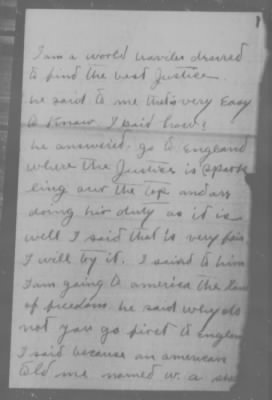 I am a world traveler desired
to find the best Justice.
he said to me that's very Easy
to Know. I said how?
he answered, go to England
where the Justice is spark
ling over the top and
doing his duty as it is
well I said that is very fair
I will by it. I said to him
I am going to america the land
of freedom he said why do
not you go first to England
I said because an american
told me named w. a